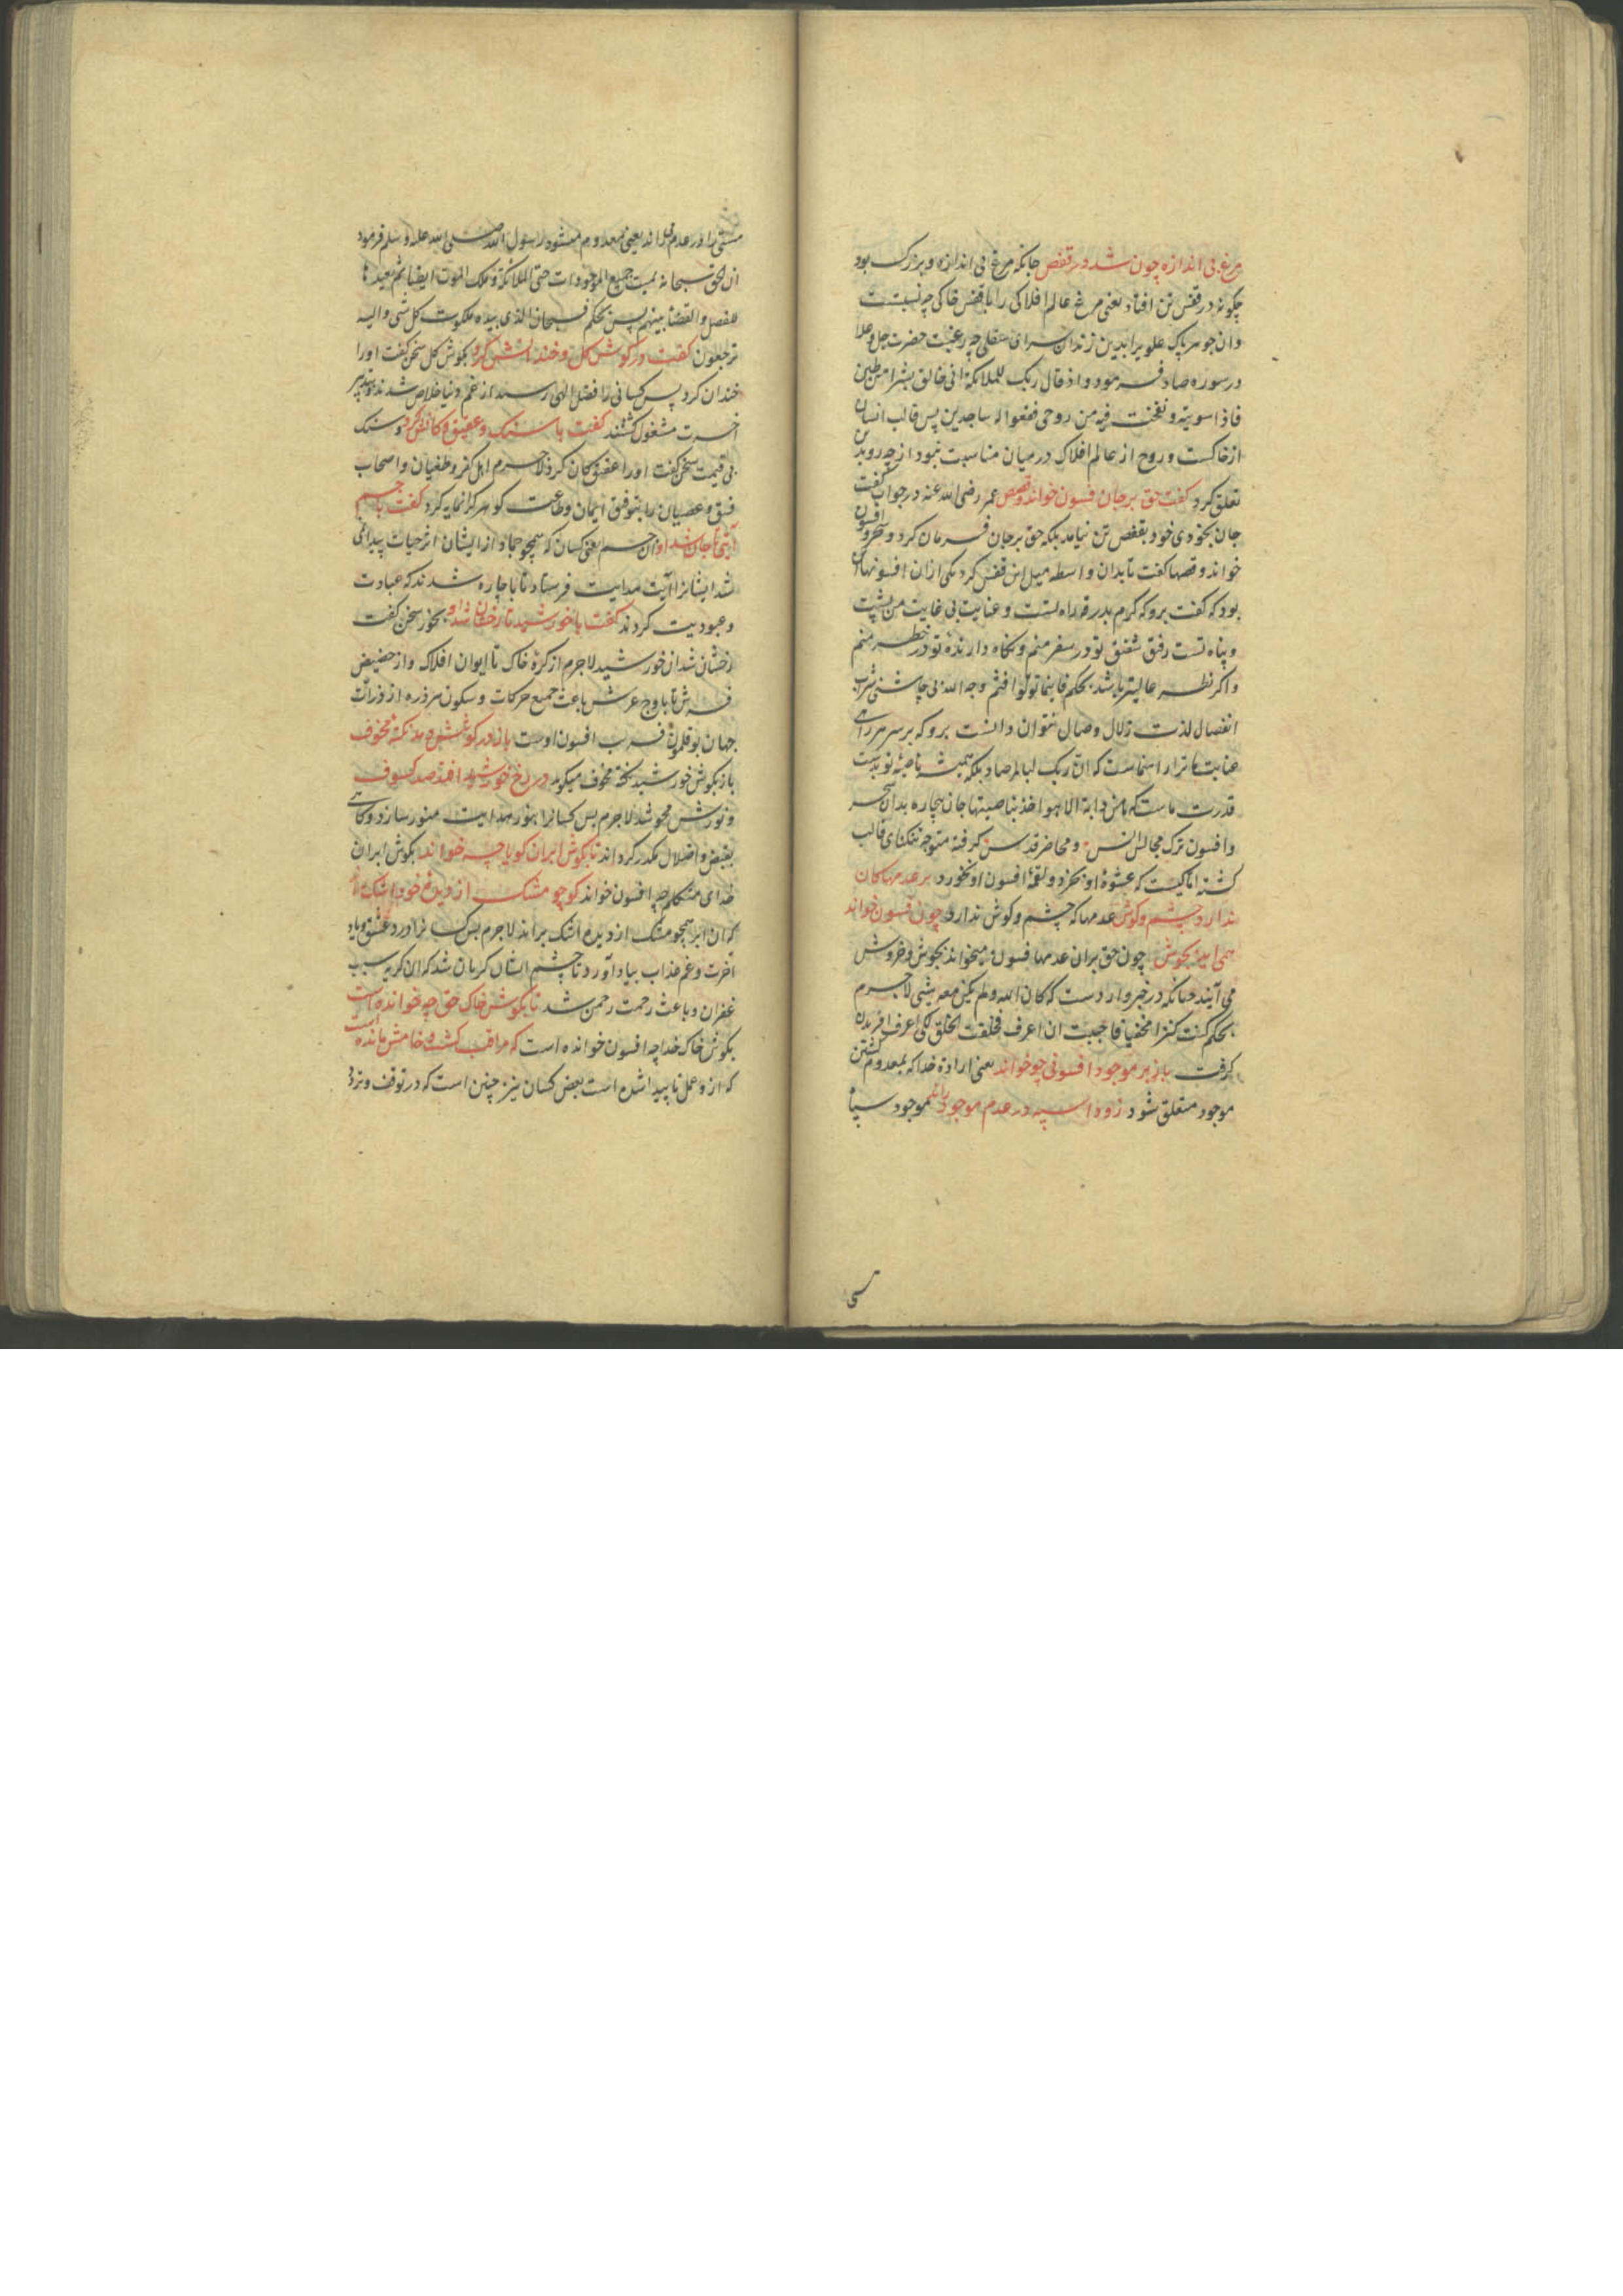 مرغ بی اندازه چون شد در قفص جانکه مرغ بی اندازه و بزرک بود
چکونه در قفس تن افتاد یعنی مرغ عالم افلاکی را با قفس خاکی چه نسبت
وان جوهر پاک علو برا بدین زندان سرای سفلی چه رغبت حضرت جل و علا
در سوره صاد فرمود و اذ قال ربک للملائکة انی خالق بشرا من طین
فاذا سویته و نفخت فیه من روحی فقعوا له ساجدین پس قالب انسان
از خاکست و روح از عالم افلاک در میان مناسبت نبود از چه رو بدن
تعلق کرد کفت حق بر جان فسون خواند و قصص عمر رضی الله عنه در جواب کفت
جان بخودی خود بقفص تن نیامد بلکه حق بر جان فرمان کرد و سحر و افسون
خواند و قصها کفت تا بدان واسطه میل این قفس کرد یکی ازان افسونها آن
بود که کفت برو که کرم بدرقه راه تست و عنایت بی غایت من پشت
و پناه تست رفیق شفیق تو در سفر منم و نکاه دارنده تو در خطر منم
و اکر نظر عالیتر باشد بحکم فاینما تولوا فثم وجه الله بی چاشنی شراب
انفصال لذت زلال وصال نتوان دانست برو که بر سر هر راهی
عنایت ما ترا راهنماست که ان ربک لبالمرصاد بلکه همیشه ناصیه تو بدست
قدرت ماست که ما من دابة الا هو اخذ بناصیتها جان بیچاره بدان سحر
و افسون ترک مجالس انس و محاضر قدس کرفته متوجه تنکنای قالب
کشته اما کیست که عشوهٔ او نخرد و لقمهٔ افسون او نخورد بر عدمها کان
ندارد چشم و کوش عدمها که چشم و کوش ندارد چون فسون خواند
همی اید بجوش چون حق بران عدمها افسون میخواند بجوش و خروش
می آیند چنانکه در خبر وارد ست که کان الله و لم یکن معه شیئ لاجرم
بحکم کنت کنزا مخفیا فاحببت ان اعرف فخلقت الخلق لکی اعرف افریدن
کرفت باز بر موجود افسونی چو خواند یعنی ارادهٔ خدا که بمعدوم کشتن
موجود متعلق شود زود اسپه در عدم موجود راند موجود سپا
هستی را در عدم راند یعنی معدوم میشود رسول الله صلی الله علیه و سلم فرمود
ان الحق سبحانه یمیت جمیع الموجودات حتی الملائکة و ملک الموت ایضا ثم یعیدها
للفصل و القضا بینهم پس بحکم فسبحان الذی بیده ملکوت کل شی و الیه
ترجعون کفت در کوش کل و خندانش کرد بکوش کل سخن کفت او را
خندان کرد پس کسانی را فضل الهی رسید از غم دنیا خلاص شدند و بتدبیر
اخرت مشغول کشتند کفت با سنک و عقیق کانش کرد و سنک
بی قیمت سخن کفت او را عقیق کان کرد لاجرم اهل کفر و طغیان و اصحاب
فسق و عصیان را بتوفیق ایمان و طاعت کوهر کرانمایه کرد کفت با جسم
آیتی تا جان شد او آن جسم یعنی کسان که همچو جماد از ایشان اثر حیات پیدا نمی
شد ایشانرا آیت هدایت فرستاد تا با چاره شدند که عبادت
و عبودیت کردند کفت با خورشید تا رخشان شد او بخور سخن کفت
رخشان شد ان خورشید لاجرم از کرهٔ خاک تا ایوان افلاک و از حضیض
فرش تا باوج عرش باعث جمیع حرکات و سکون هر ذره از ذرات
جهان بوقلمون فریب افسون اوست باز در کوشش دمد نکتهٔ مخوف
باز بکوش خورشید نکته مخوف میکوید در رخ خورشید افتد صد کسوف
و نورش محو شد لاجرم بس کسانرا بنور هدایت منور سازد و کاهی
بقبض و اضلال مکدر کرداند تا بکوش ابران کویا چه خواند بکوش ابران
خدای متکلم چه افسون خواند کو چو مشک از دیدهٔ خود اشک راند
که ان ابر همچو مشک از دیده اشک براند لاجرم بس کسانرا درد عشق و یاد
اخرت و غم عذاب بیاد آورد تا چشم ایشان کریان شد که ان کریه سبب
غفران و باعث رحمت رحمن شد تا بکوش خاک حق چه خوانده است
بکوش خاک خدا چه افسون خوانده است که مراقب کشت و خامش مانده است
که از و عمل ناپیدا شده است بعض کسان نیز چنین است که در توقف و تردد